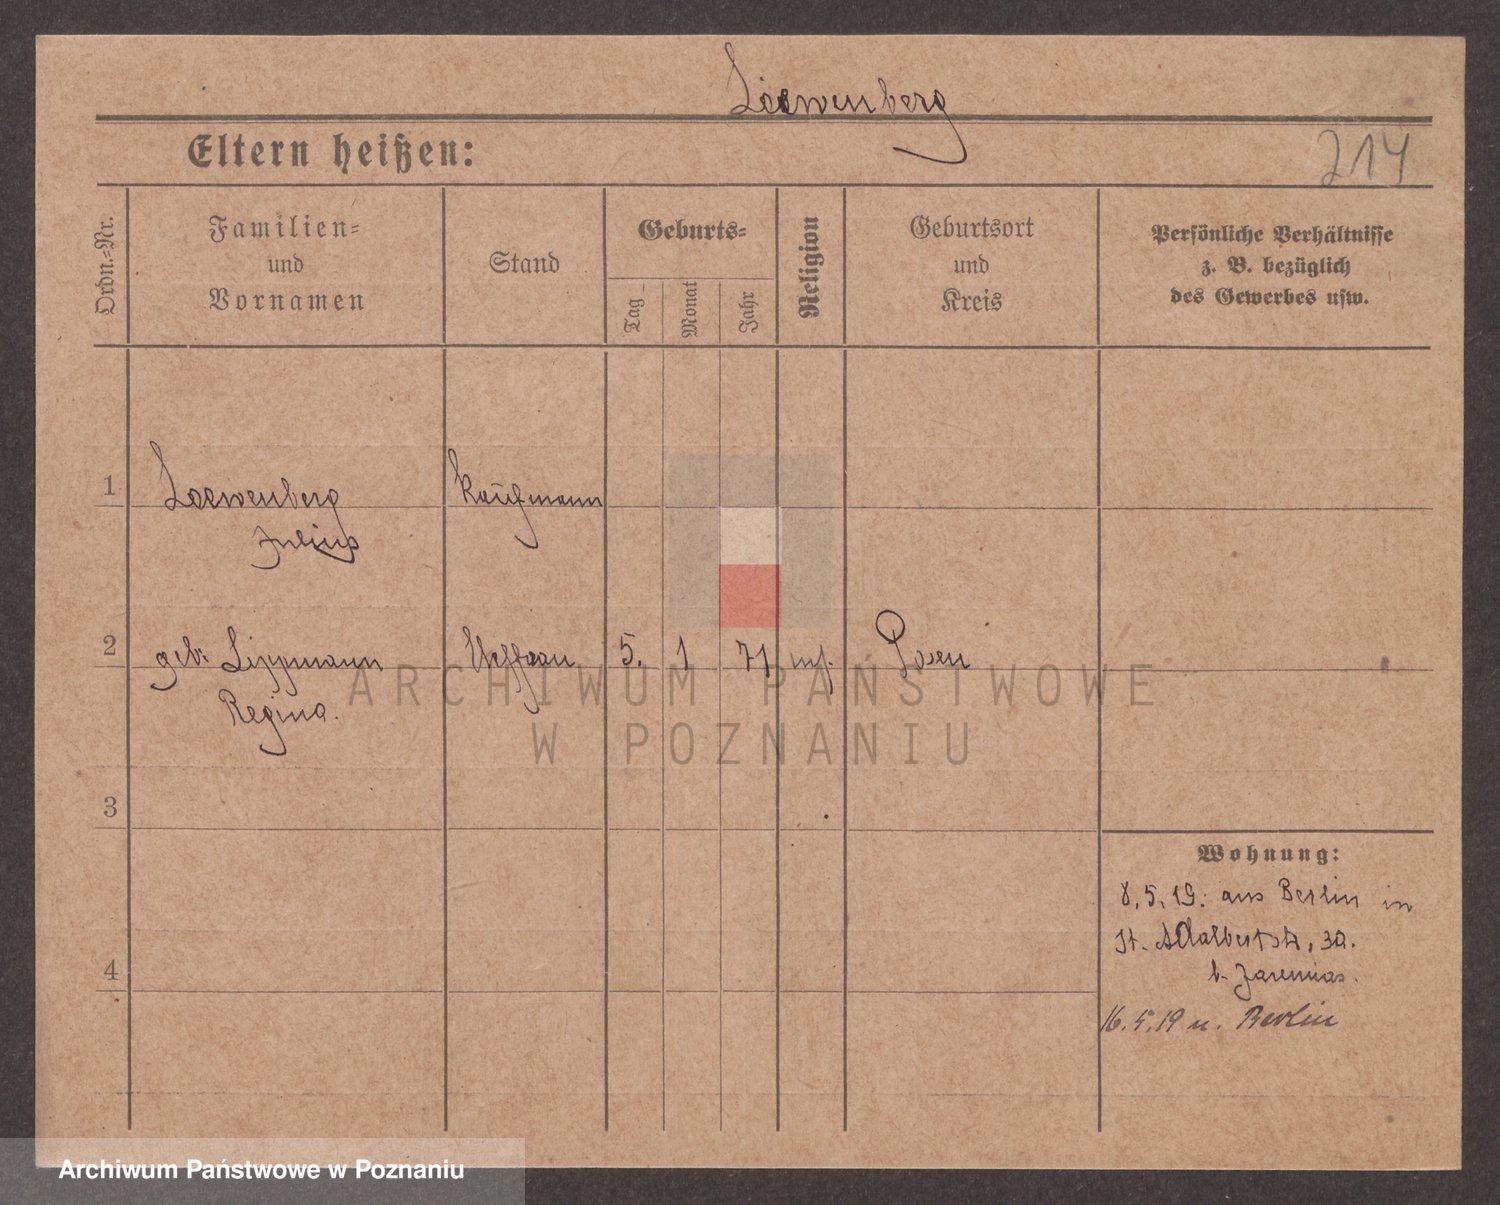 Loewenberg
Eltern heißen:
214
Ordn.-Nr.
Familien-
und
Vornamen
Stand
Geburts-
Tag
Monat
Jahr
Religion
Geburtsort
und
Kreis
Persönliche Verhältnisse
z. B. bezüglich
des Gewerbes usw.
1
Loewenberg
Kaufmann
Julius
2
geb. Lippmann
Ehefrau
5.
1
71
mos.
Posen
Regina.
3
4
Wohnung:
8.5.19. aus Berlin in
St. Adalbertstr. 30.
b. Jaremias.
16.5.19 n. Berlin
ARCHIWUM PAŃSTWOWE
W POZNANIU
Archiwum Państwowe w Poznaniu